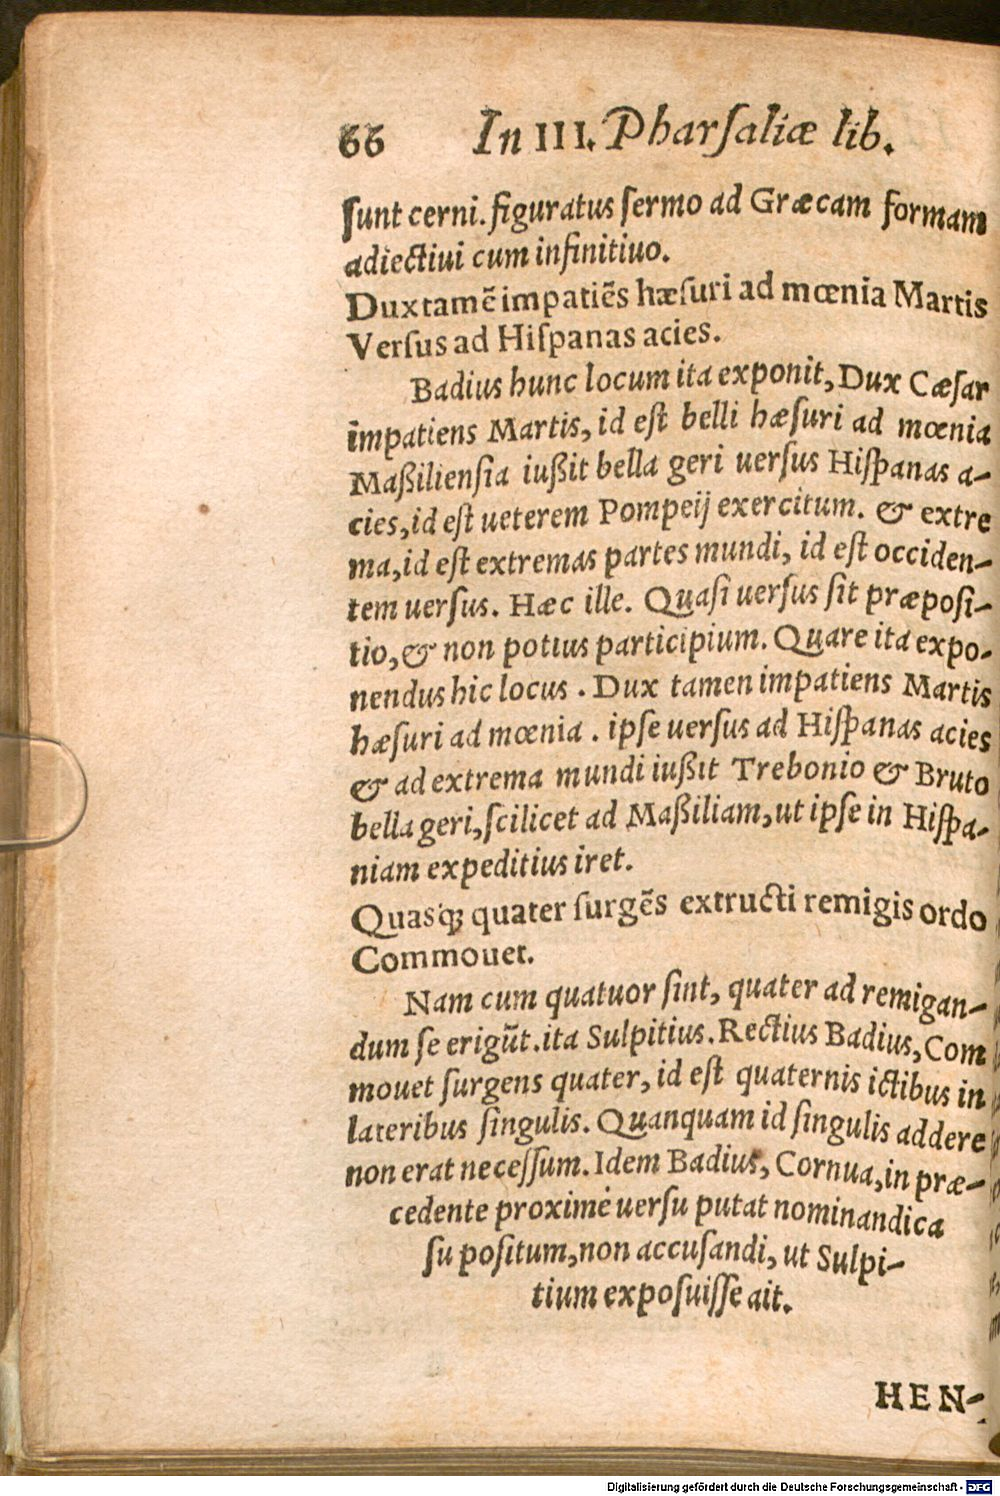 66 In III. Pharſaliæ lib.
ſunt cerni. figuratus ſermo ad Græcam formam
adiectiui cum infinitiuo.
Dux tamē impatiēs hæſuri ad mœnia Martis
Verſus ad Hiſpanas acies.
Badius hunc locum ita exponit, Dux Cæſar
impatiens Martis, id eſt belli hæſuri ad mœnia
Maßilienſia iußit bella geri uerſus Hiſpanas a-
cies, id eſt ueterem Pompeij exercitum. & extre
ma, id eſt extremas partes mundi, id eſt occiden-
tem uerſus. Hæc ille. Quaſi uerſus ſit præpoſi-
tio, & non potius participium. Quare ita expo-
nendus hic locus. Dux tamen impatiens Martis
hæſuri ad mœnia. ipſe uerſus ad Hiſpanas acies
& ad extrema mundi iußit Trebonio & Bruto
bella geri, ſcilicet ad Maßiliam, ut ipſe in Hiſpa-
niam expeditius iret.
Quasq́; quater ſurgēs extructi remigis ordo
Commouet.
Nam cum quatuor ſint, quater ad remigan-
dum ſe erigūt. ita Sulpitius. Rectius Badius, Com
mouet ſurgens quater, id eſt quaternis ictibus in
lateribus ſingulis. Quanquam id ſingulis addere
non erat neceſſum. Idem Badius, Cornua, in præ-
cedente proximè uerſu putat nominandi ca
ſu poſitum, non accuſandi, ut Sulpi-
tium expoſuiſſe ait.
HEN-
Digitalisierung gefördert durch die Deutsche Forschungsgemeinschaft - DFG